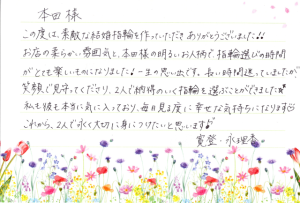 本田様
この度は、素敵な結婚指輪を作っていただきありがとうございました!!
お店の柔らかい雰囲気と、本田様の明るいお人柄で、指輪選びの時間
がとても楽しいものになりました!一生の思い出です。長い時間迷っていましたが
笑顔で見守ってくださり、2人で納得のいく指輪を選ぶことができました
私も彼も本当に気に入っており、毎日見る度に幸せな気持ちになります
これから、2人で永く大切に身につけたいと思います